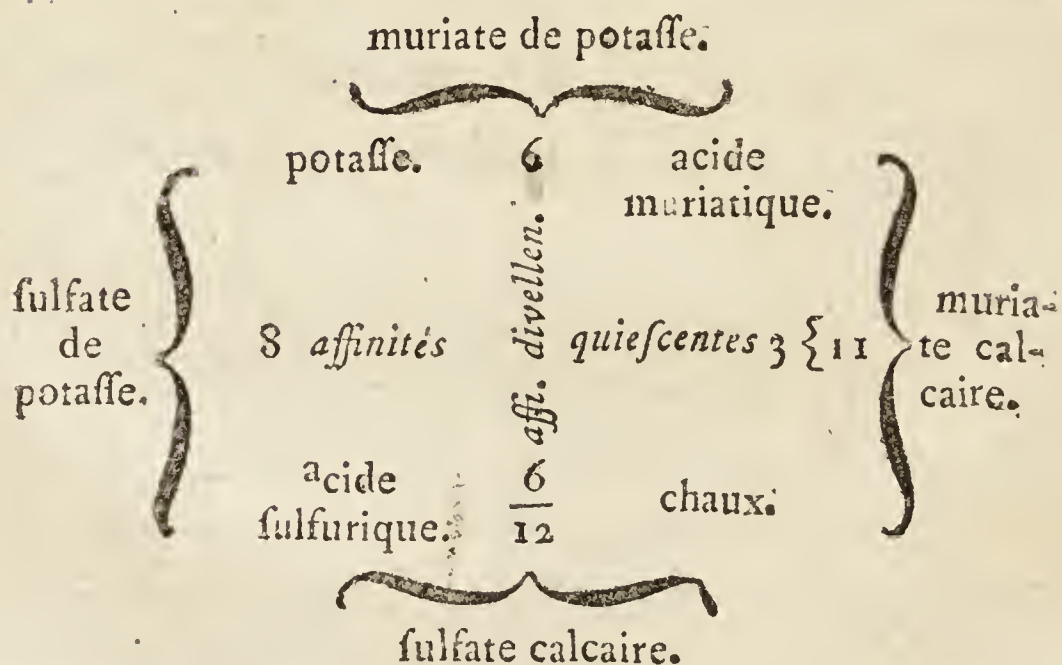 muriate de potaſſe.
potaſſe. 6 acide
muriatique.
ſulfate
de
potaſſe.
8 affinités
affi. divellen.
quieſcentes 3 { 11
muria-
te cal-
caire.
acide
ſulfurique.
6
12
chaux.
ſulfate calcaire.